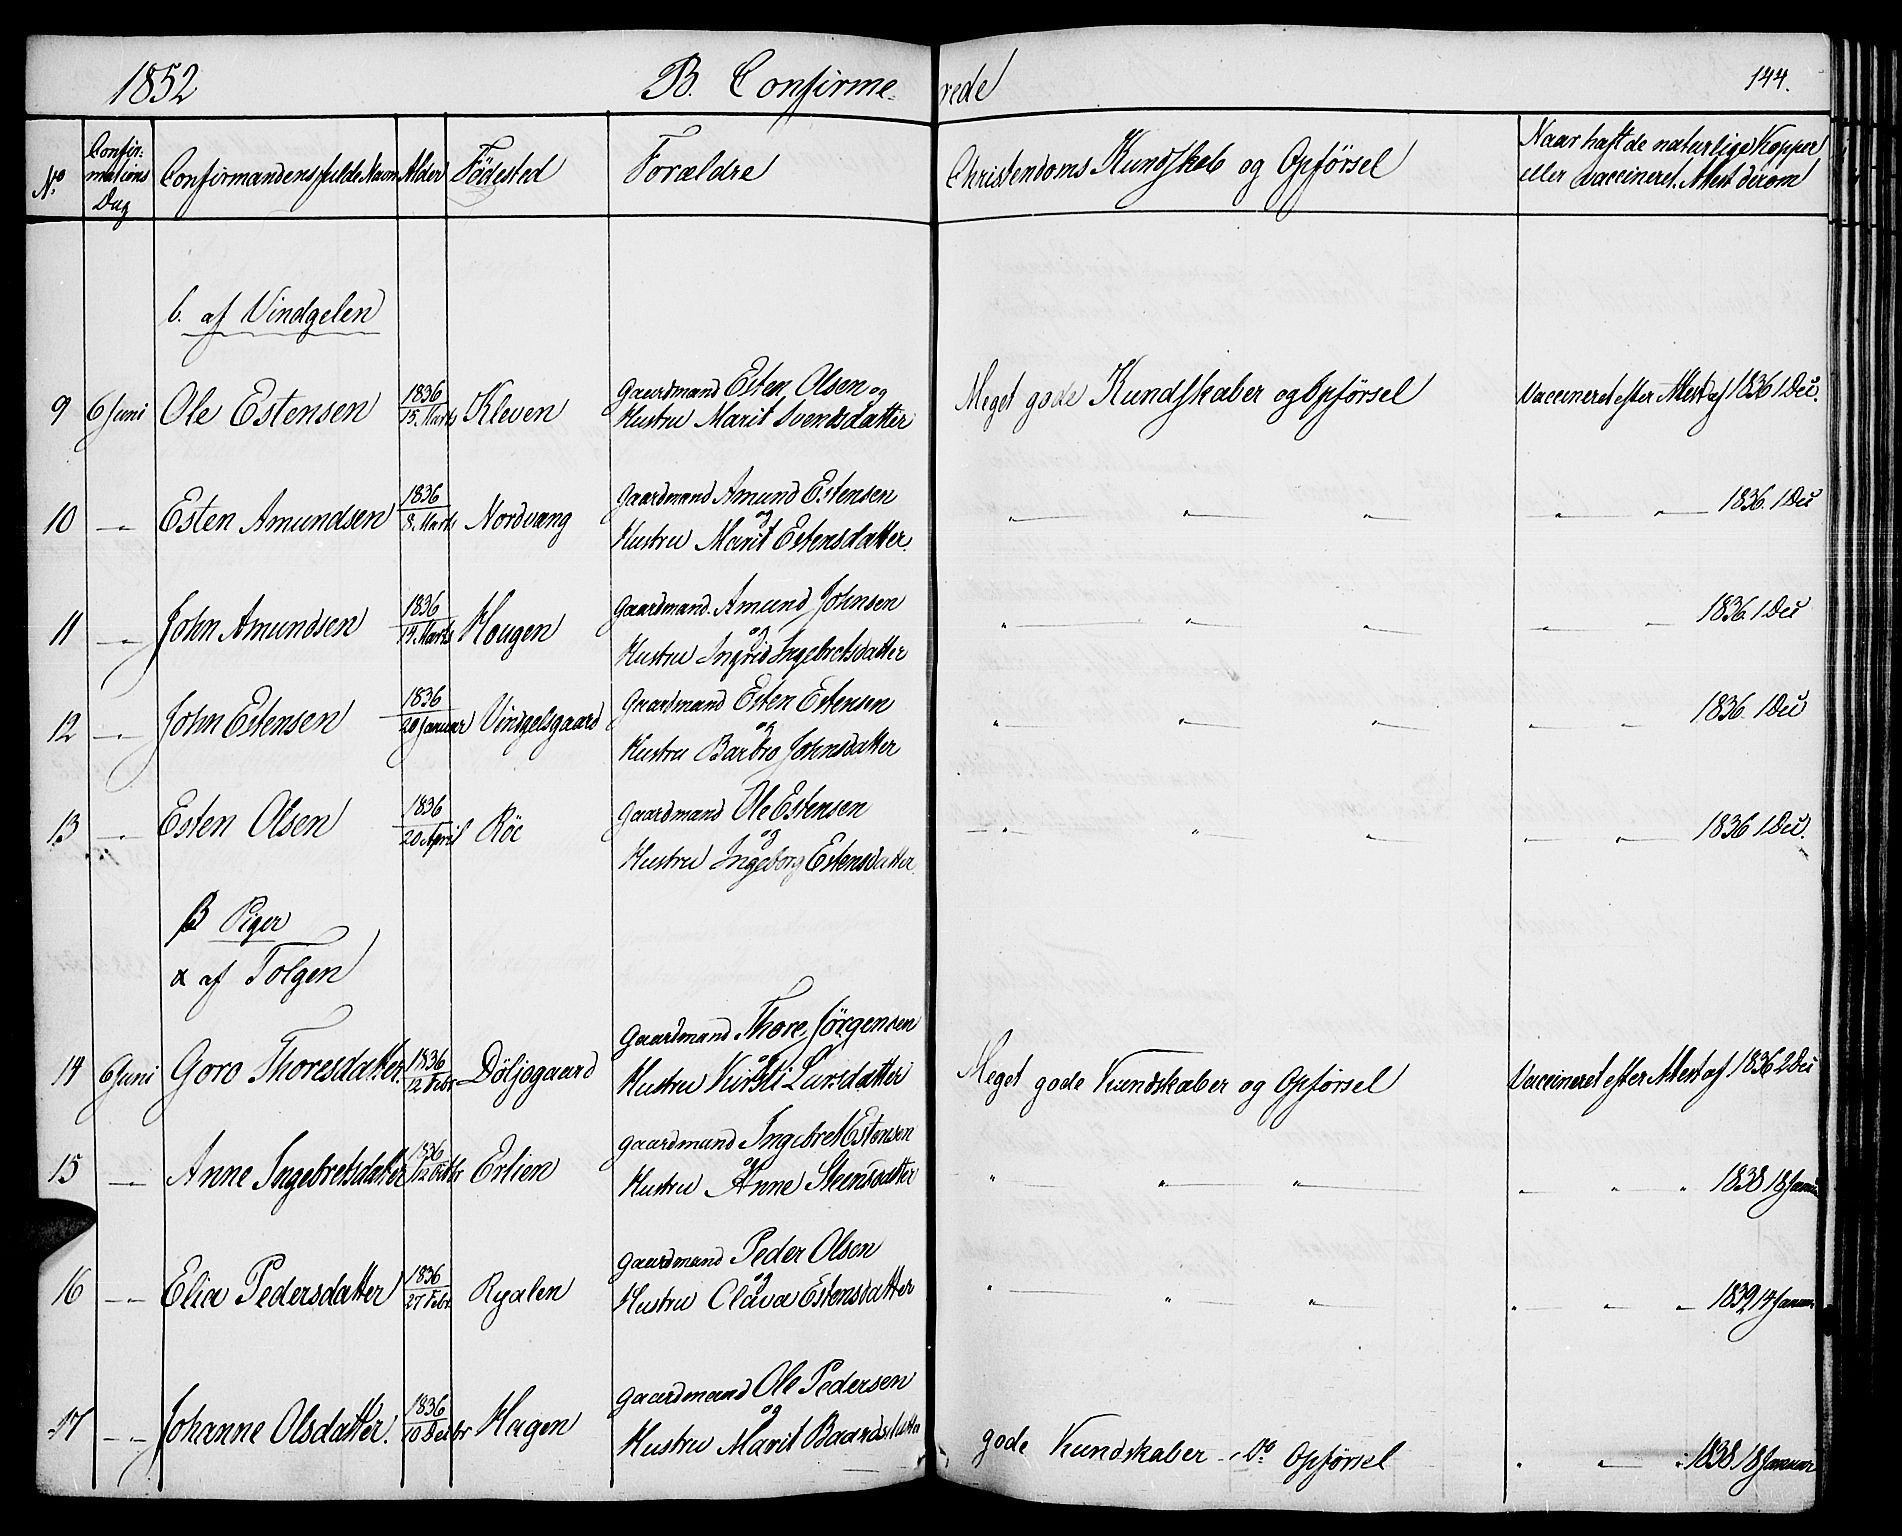 1852 B. Confirmerede 144.
No Confirmations Dag Confirmandens fulde Navn Alder Födested Forældre Christendoms Kundskab og Opförsel Naar haft de naturlige Kopper eller vaccineret. Attest derom
b. af Vindgelen
9 6 Juni Ole Estensen 1836 15. Marts Kleven Gaardmand Esten Olsen og Meget gode Kundskaber og Opförsel Vaccineret efter Attest af 1836 1 Dec.
Hustru Marit Svendsdatter
10 — " — Esten Amundsen 1836 8. Marts Nordvang Gaardmand Amund Estensen og " " " " " 1836. 1 Dec
Hustru Marit Estensdatter.
11 — " — John Amundsen 1836 14. Marts Hougen Gaardmand. Amund Johnsen og " " " " " 1836. 1 Dec
Hustru Ingrid Ingebretsdatter
12 — " — John Estensen 1836 20 Januar Vingelsgaard Gaardmand Esten Estensen og " " " " " 1836. 1 Dec
Hustru Barbro Johnsdatter
13 — " — Esten Olsen 1836 20 April Röe Gaardmand Ole Estensen og " " " " " 1836 1 Dec.
Hustru Ingeborg Estensdatter
β Piger
α af Tolgen
14 6 Juni Goro Thoresdatter. 1836 12 Febr Döljogaard Gaardmand Thore Jörgensen og Meget gode Kundskaber og Opförsel Vaccineret efter Attest af 1836 2 Dec
Hustru Kirsti Larsdatter
15 — " — Anne Ingebretsdatter 1836 Erlien Gaardmand Ingebret Estensen og " " " " " " 1838 18 Januar
Hustru Anne Steensdatter
16 — " — Elia Pedersdatter 1836 27 Febr. Ryalen Gaardmand Peder Olsen og " " " " " " 1839 14 Januar
Hustru Clava Estensdatter
17 — " — Johanne Olsdatter. 1836 10 Decbr Hagen Gaardmand Ole Pedersen og gode Kundskaber — Do Opförsel " " " 1838 18 Januar
Hustru Marit Baardsdatter